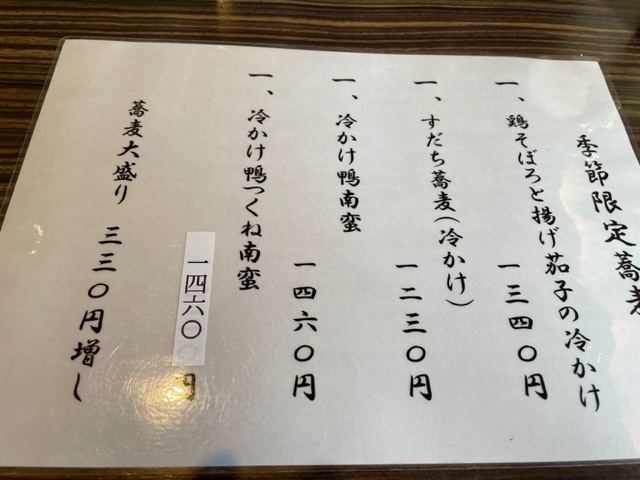 季節限定蕎麦
一、鶏そぼろと揚げ茄子の冷かけ
一三四〇円
一、すだち蕎麦(冷かけ)
一二三〇円
一、冷かけ鴨南蛮
一四六〇円
一、冷かけ鴨つくね南蛮
一四六〇円
蕎麦大盛り 三三〇円増し